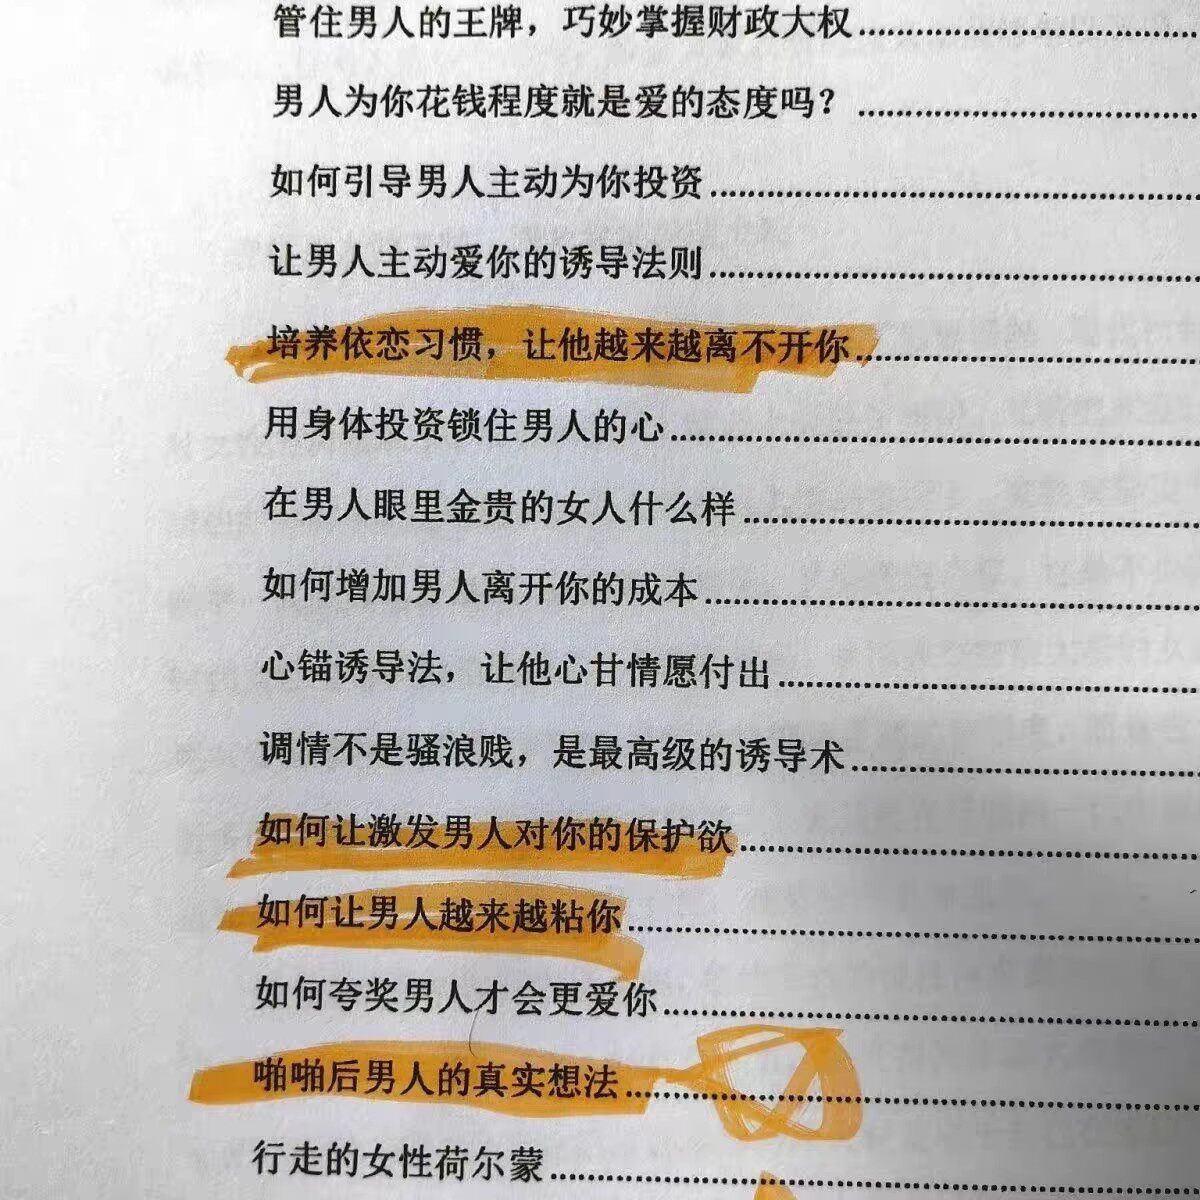 管住男人的王牌，巧妙掌握财政大权
男人为你花钱程度就是爱的态度吗？
如何引导男人主动为你投资
让男人主动爱你的诱导法则
培养依恋习惯，让他越来越离不开你
用身体投资锁住男人的心
在男人眼里金贵的女人什么样
如何增加男人离开你的成本
心锚诱导法，让他心甘情愿付出
调情不是骚浪贱，是最高级的诱导术
如何让激发男人对你的保护欲
如何让男人越来越粘你
如何夸奖男人才会更爱你
啪啪后男人的真实想法
行走的女性荷尔蒙